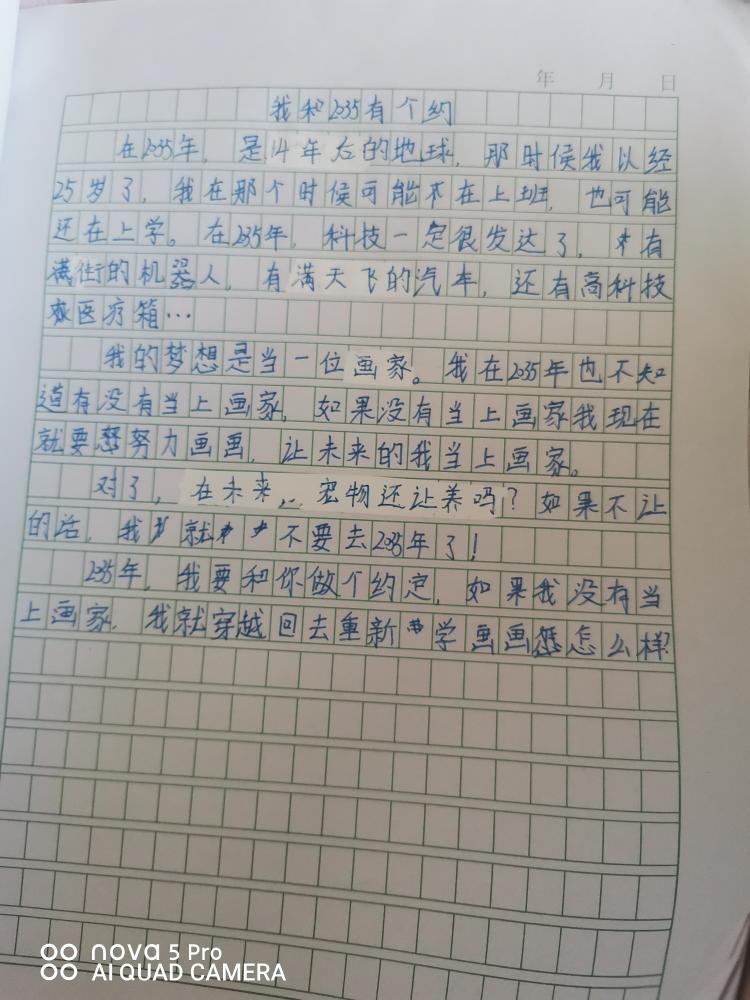 年 月 日
我和2035有个约
在2035年，是14年后的地球，那时候我以经
25岁了，我在那个时候可能不在上班，也可能
还在上学。在2035年，科技一定很发达了，有
满街的机器人，有满天飞的汽车，还有高科技
医疗箱…
我的梦想是当一位画家。我在2035年也不知
道有没有当上画家，如果没有当上画家我现在
就要努力画画，让未来的我当上画家。
对了，在未来，宠物还让养吗？如果不让
的话，我就不要去2035年了！
2035年，我要和你做个约定，如果我没有当
上画家，我就穿越回去重新学画画怎么样？
nova 5 Pro
AI QUAD CAMERA